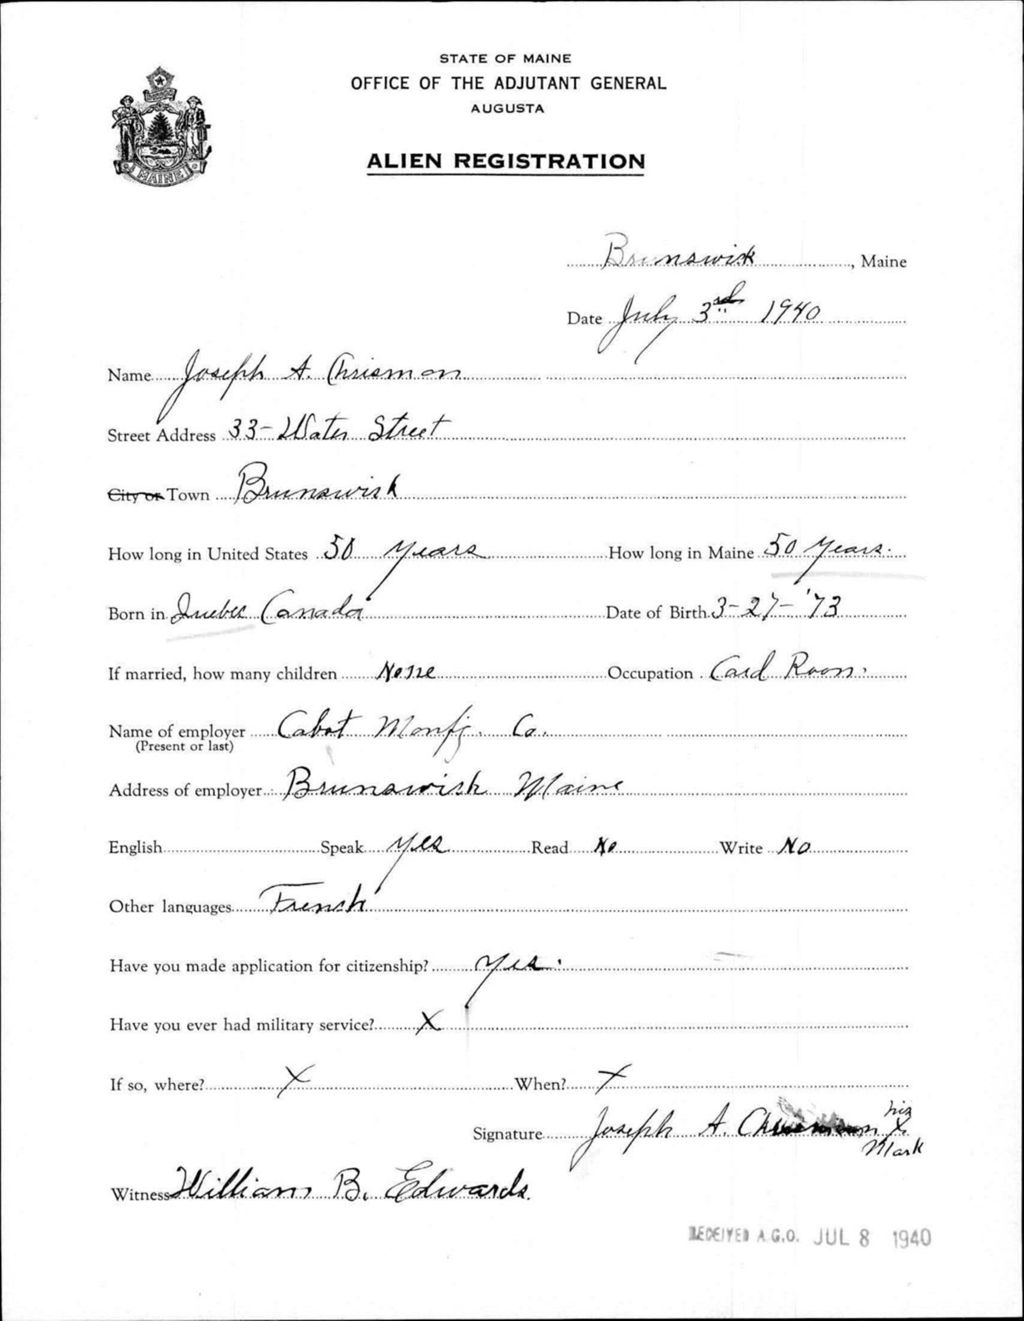 STATE OF MAINE
OFFICE OF THE ADJUTANT GENERAL
AUGUSTA
ALIEN REGISTRATION
MAINE
Brunswick, Maine
Date July 3rd 1940
Name Joseph A. Chrismon
Street Address 33- Water Street
City or Town Brunswick
How long in United States 50 years How long in Maine 50 years.
Born in Quebec Canada Date of Birth 3-27-'73
If married, how many children None Occupation Card Room.
Name of employer Cabot Manfg. Co.
(Present or last)
Address of employer Brunswick Maine
English Speak yes Read No Write No
Other languages French
Have you made application for citizenship? yes.
Have you ever had military service? X
If so, where? X When? X
his
Signature Joseph A. Chrismon X
Mark
Witness William B. Edwards.
RECEIVED A.G.O. JUL 8 1940